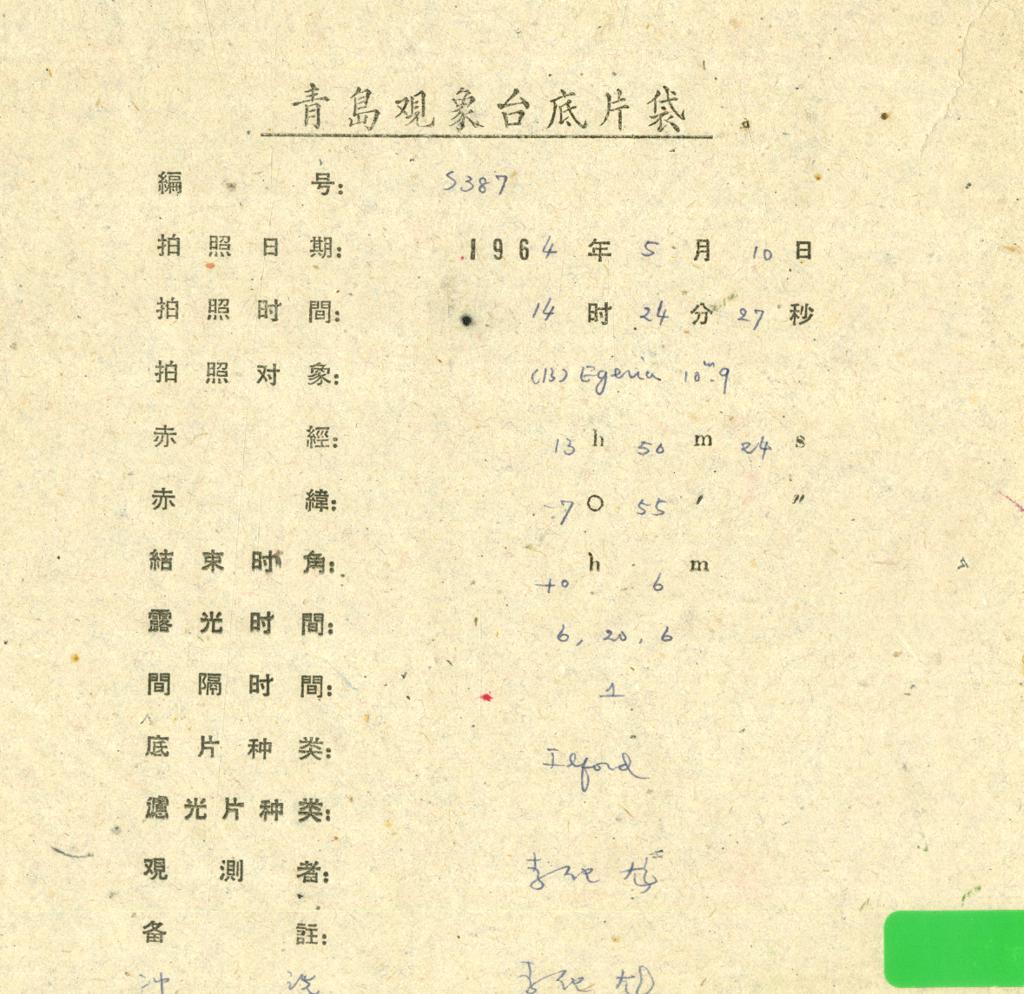 青島观象台底片袋
編 号: S387
拍照日期: 1964年5月10日
拍照时間: 14时24分27秒
拍照对象: (13) Egeria 10ᵐ.9
赤 經: 13h 50m 24s
赤 緯: -7° 55′ ″
結束时角: +0h 6m
露光时間: 6, 20, 6
間隔时間: 1
底片种类: Ilford
濾光片种类:
观測者: 李
备 註:
冲 洗 李